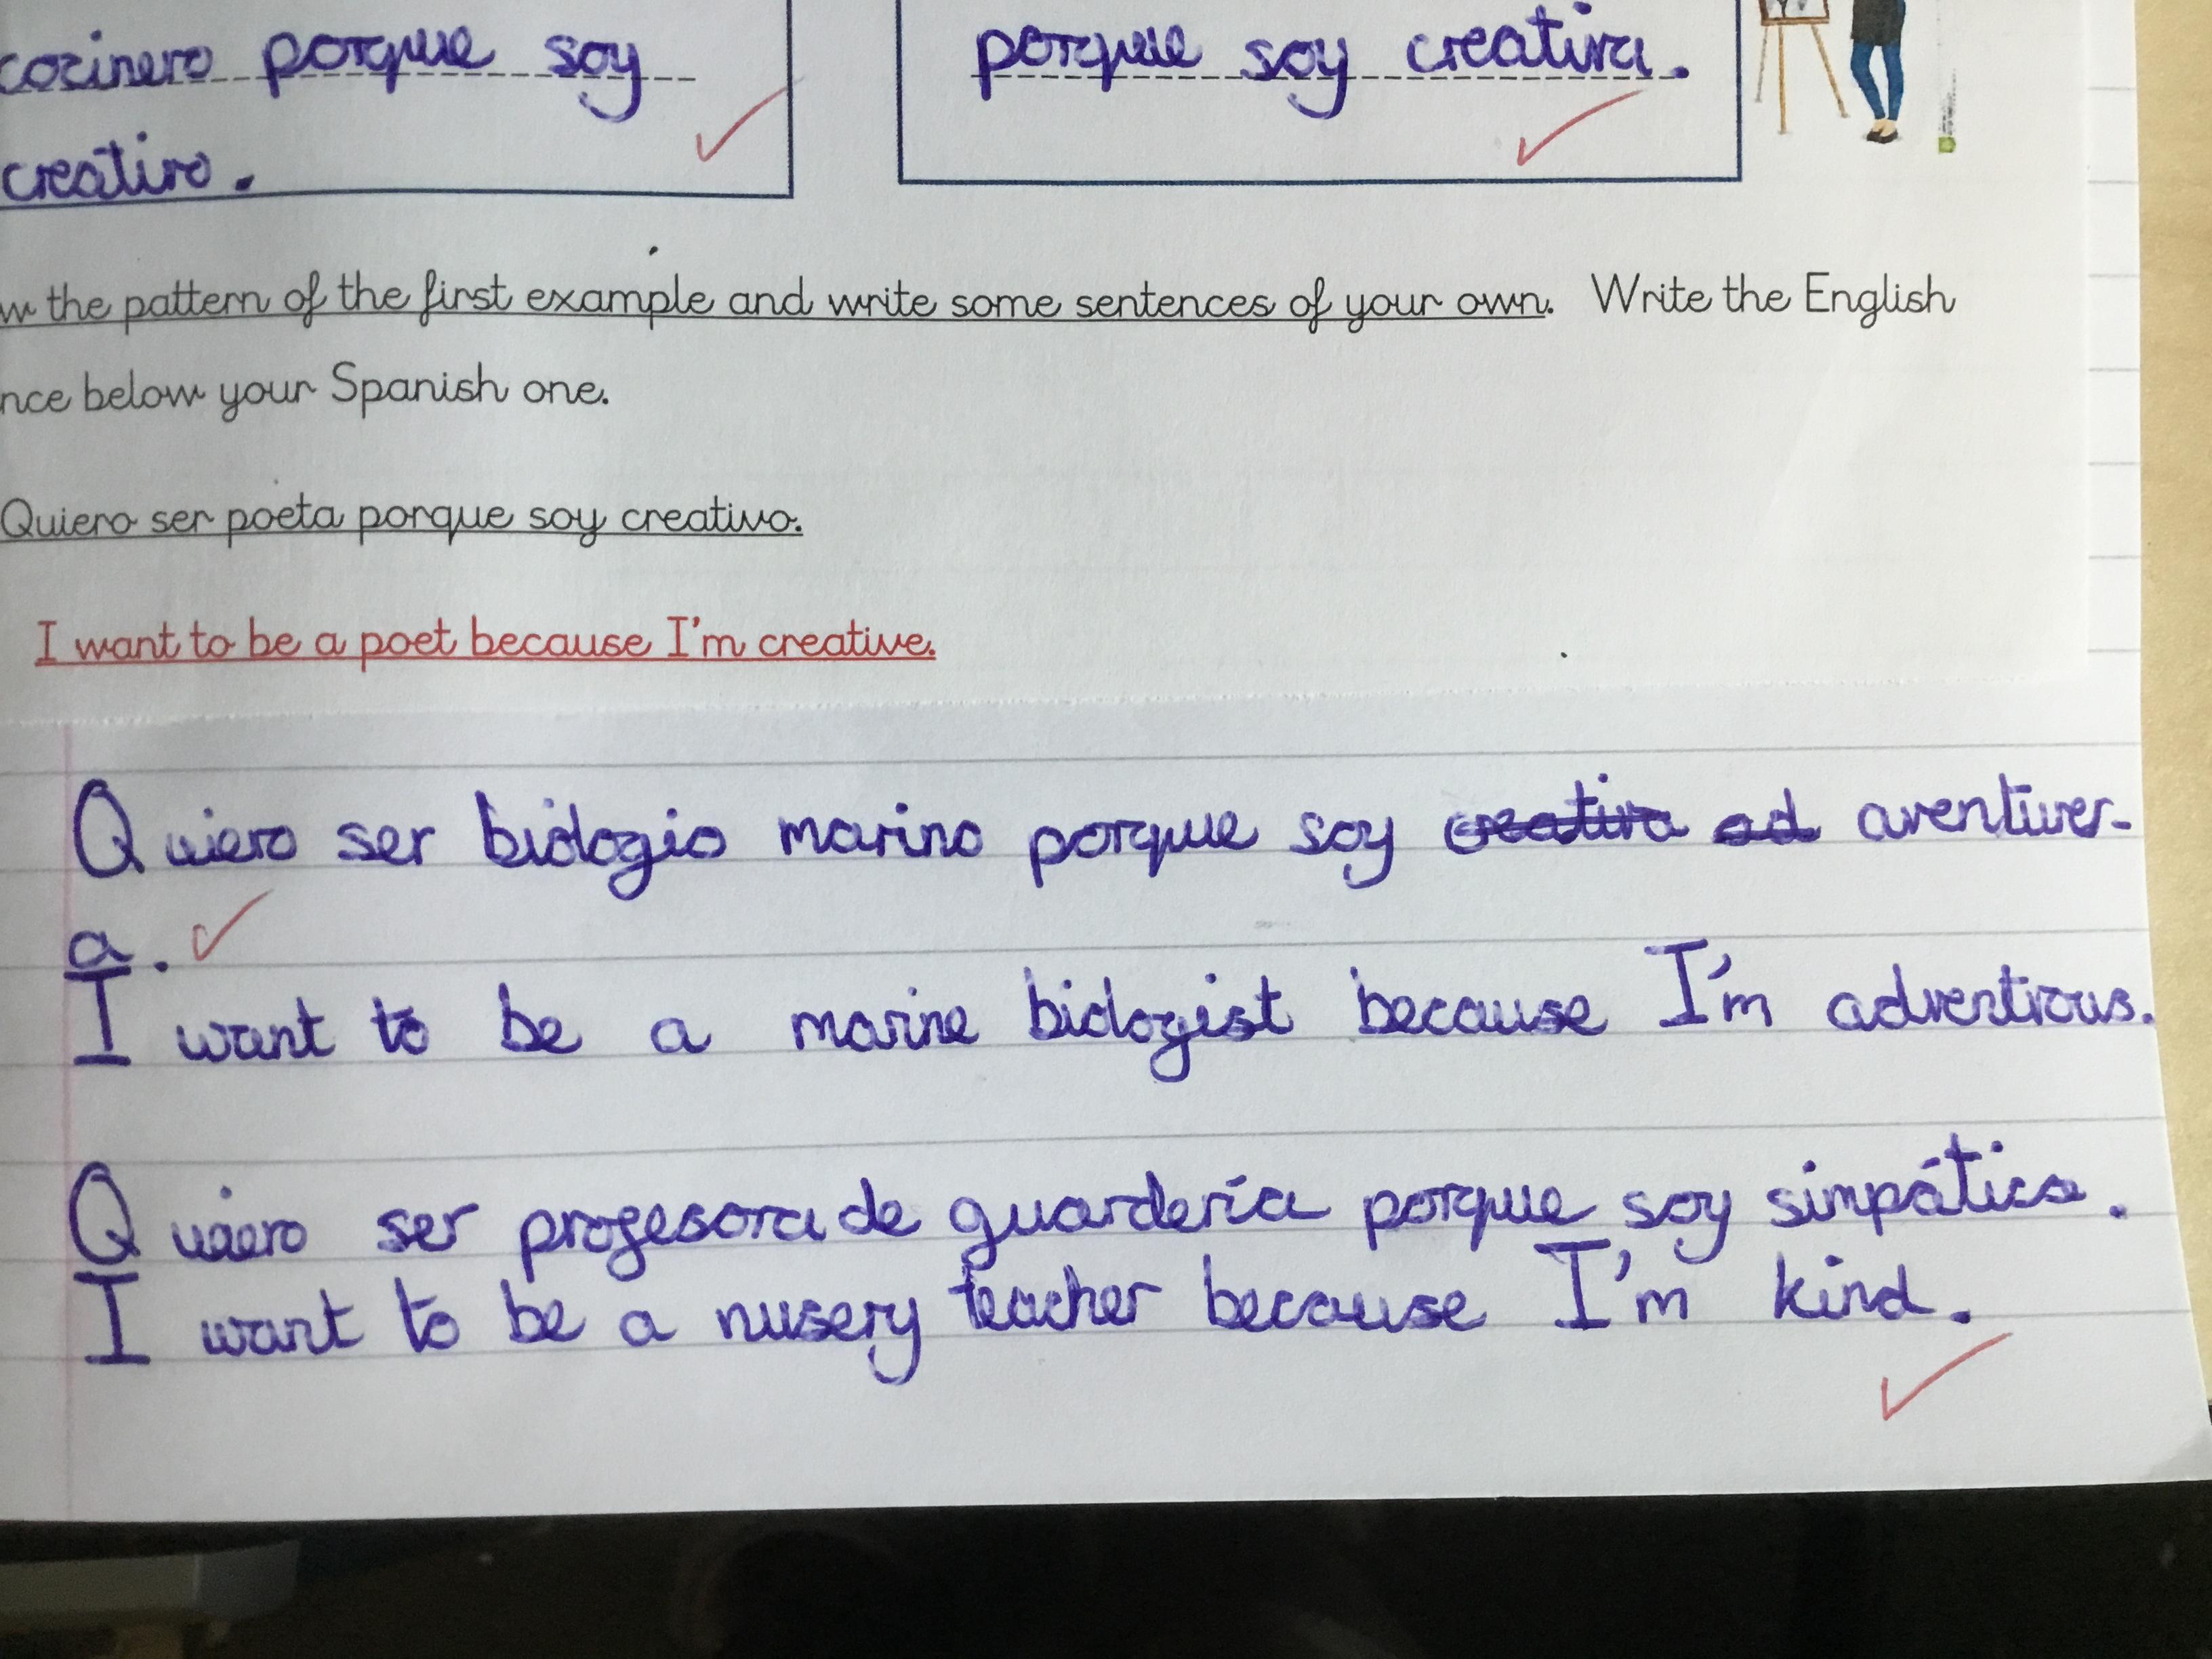 cozinero porque soy
creativo.
porque soy creativa.
w the pattern of the first example and write some sentences of your own. Write the English
nce below your Spanish one.
Quiero ser poeta porque soy creativo.
I want to be a poet because I'm creative.
Quiero ser biologio marino porque soy creativa ad aventurer-
a.
I want to be a marine biologist because I'm adventrous.
Quiero ser profesora de guardería porque soy simpática.
I want to be a nusery teacher because I'm kind.